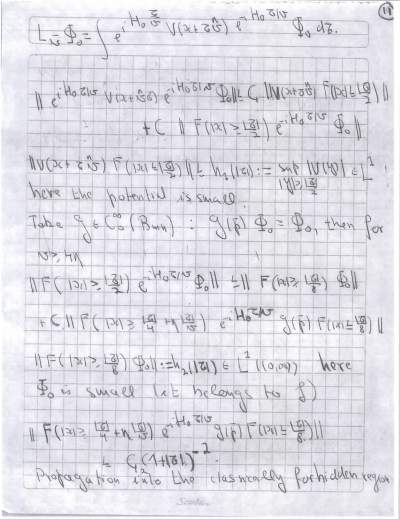 11
L_v Φ_0 = ∫ e^{iH_0 z/v} V(x+z v̂) e^{-iH_0 z/v} Φ_0 dz.
‖ e^{-iH_0 z/v} V(x+z v̂) e^{-iH_0 z/v} Φ_0 ‖ ≤ C ‖ V(x+z v̂) F(|x| ≤ |z|/2) ‖
+ C ‖ F(|x| ≥ |z|/2) e^{-iH_0 z/v} Φ_0 ‖
‖ V(x+z v̂) F(|x| ≤ |z|/2) ‖ ≤ h_1(|z|) := sup_{|y| ≥ |z|/2} |V(y)| ∈ L^1
here the potential is small.
Take g ∈ C_0^∞(B_{mη}) : g(p̄) Φ_0 = Φ_0, then for
v ≥ 4η
‖ F(|x| ≥ |z|/2) e^{-iH_0 z/v} Φ_0 ‖ ≤ ‖ F(|x| ≥ |z|/8) Φ_0 ‖
+ C ‖ F(|x| ≥ |z|/4 + η |z|/v) e^{-iH_0 z/v} g(p̄) F(|x| ≤ |z|/8) ‖
‖ F(|x| ≥ |z|/8) Φ_0 ‖ := h_2(|z|) ∈ L^1((0,∞)) here
Φ_0 is small (it belongs to
‖ F(|x| ≥ |z|/4 + η |z|/v) e^{-iH_0 z/v} g(p̄) F(|x| ≤ |z|/8) ‖
≤ C_2 (1+|z|)^{-2}.
Propagation into the classically forbidden region